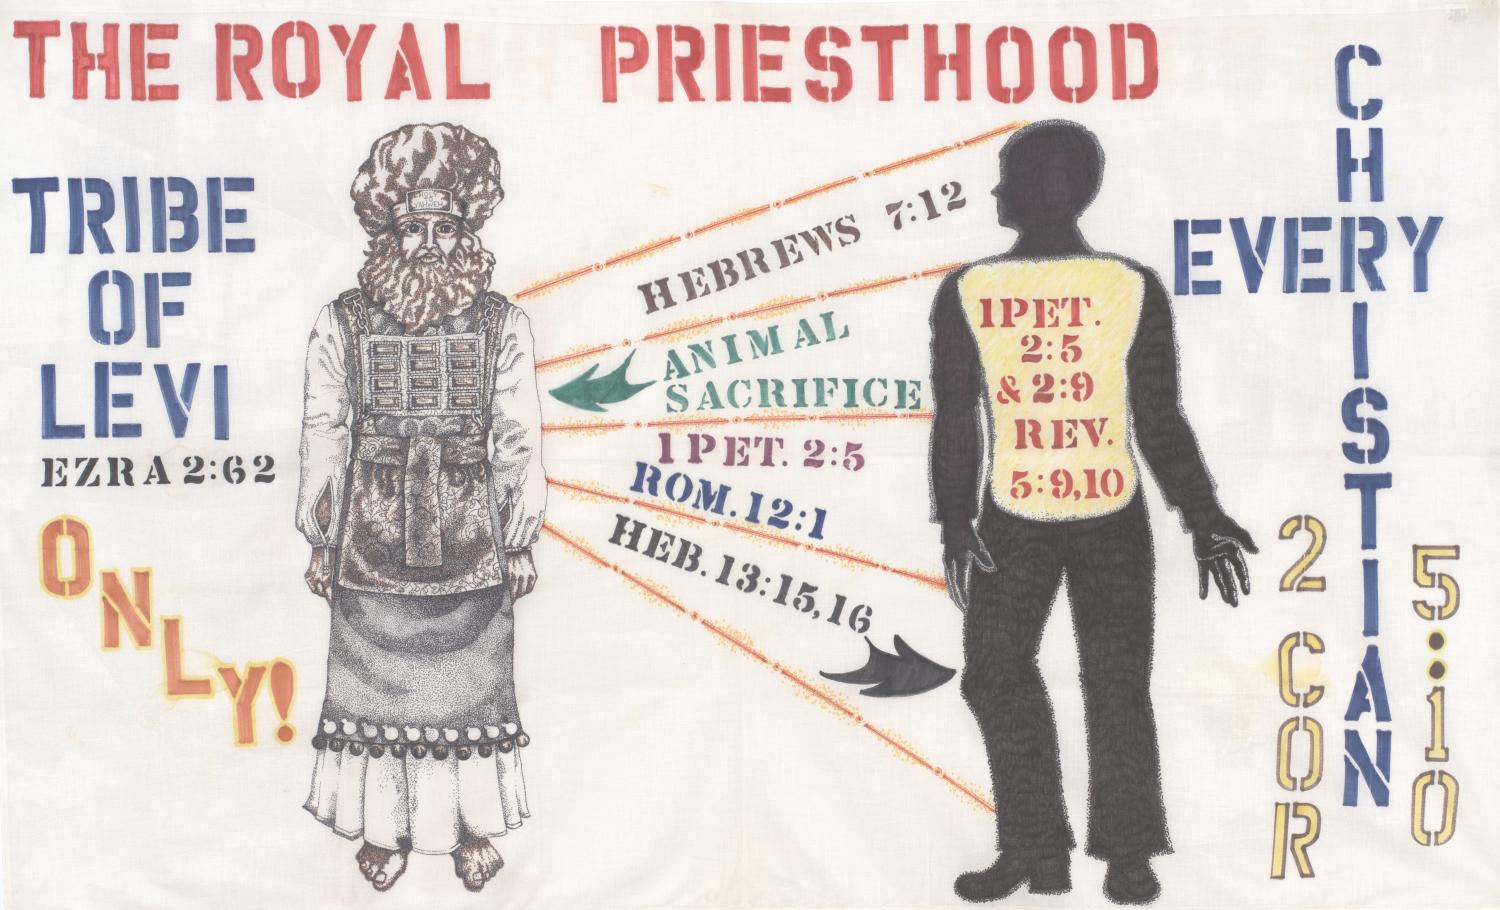 THE ROYAL PRIESTHOOD
TRIBE
OF
LEVI
EZRA 2:62
ONLY!
HEBREWS 7:12
ANIMAL
SACRIFICE
1 PET. 2:5
ROM. 12:1
HEB. 13:15,16
1 PET.
2:5
& 2:9
REV.
5:9,10
EVERY
CHRISTIAN
2 COR
5:10